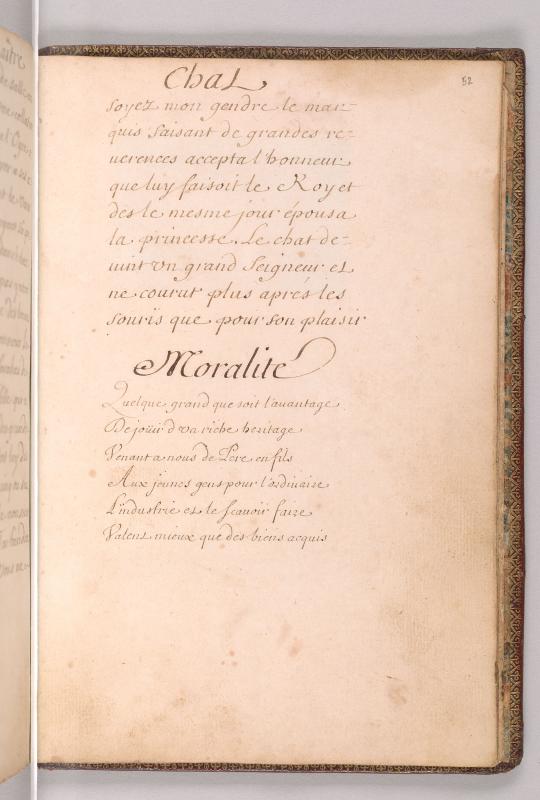 52
Chat
soyez mon gendre le mar=
quis faisant de grandes re=
uerences accepta l'honneur
que luy faisoit le Roy et
des le mesme jour épousa
la princesse. Le chat de=
uint vn grand Seigneur et
ne courut plus aprés les
souris que pour son plaisir
Moralité
Quelque grand que soit l'auantage
De joüir d'vn riche heritage
Venant a nous de Pere en fils
Aux jeunes gens pour l'ordinaire
L'industrie et le scauoir faire
Valent mieux que des biens acquis